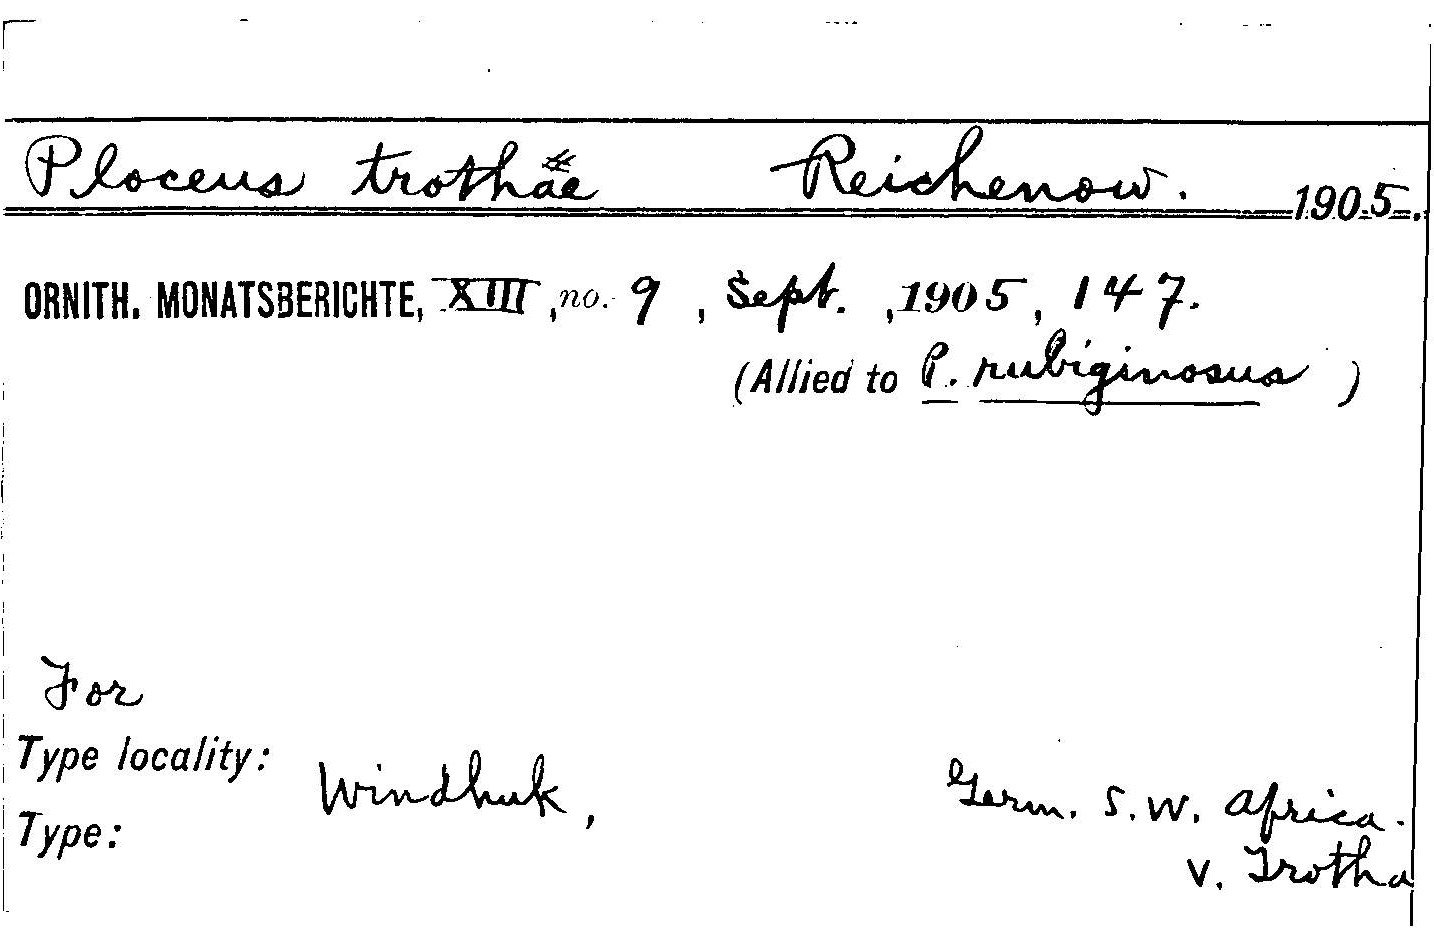 Ploceus trothae Reichenow. 1905.
ORNITH. MONATSBERICHTE, XIII, no. 9, Sept., 1905, 147.
(Allied to P. rubiginosus)
For
Type locality: Windhuk, Germ. S.W. Africa.
Type: v. Trotha